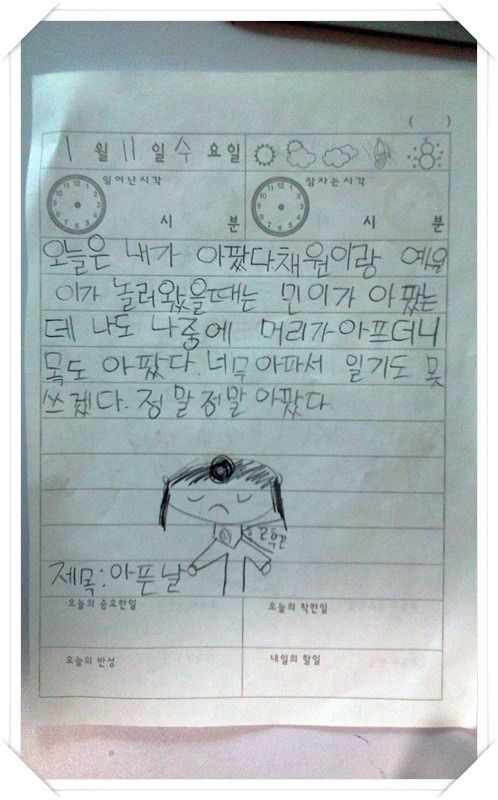 ( )
1 월 11 일 수 요일
일어난시각 잠자는시각
시 분 시 분
오늘은 내가 아팠다.채원이랑 예원
이가 놀러왔을때는 민이가 아팠는
데 나도 나중에 머리가아프더니
목도 아팠다.너무아파서 일기도 못
쓰겠다.정말정말아팠다.
콜록콜록
제목:아픈날
오늘의 중요한일 오늘의 착한일
오늘의 반성 내일의 할일